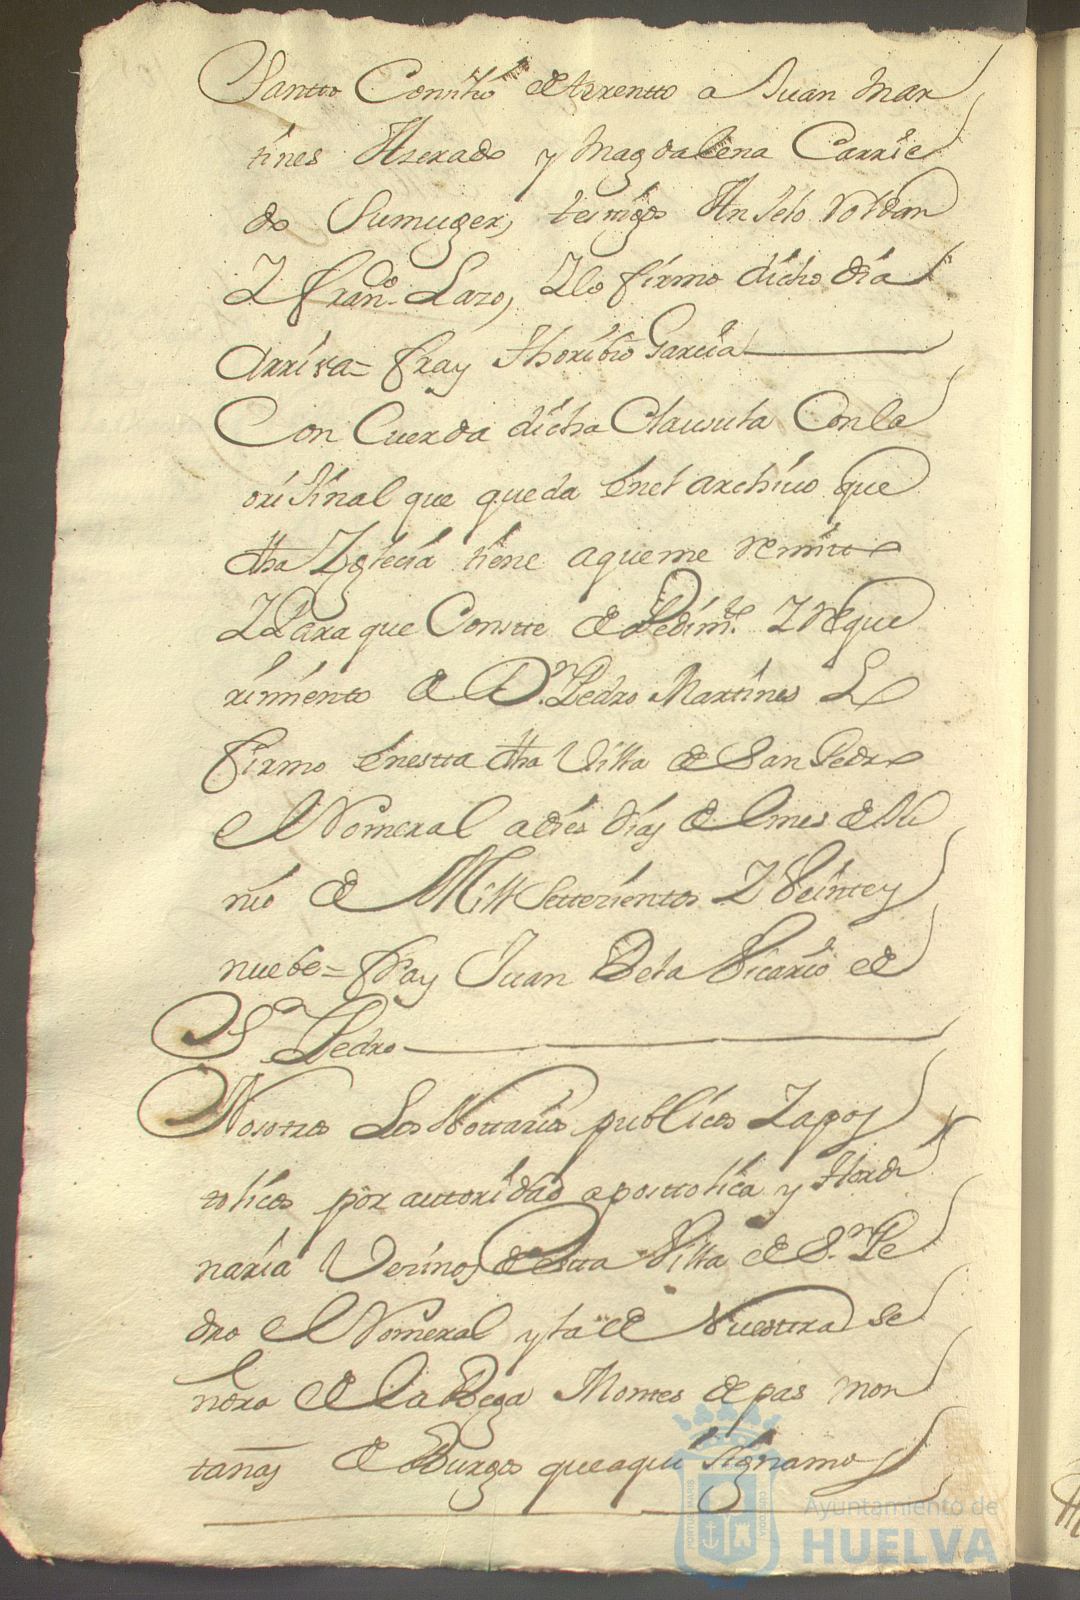 Santto Conzilio de trento a Juan Mar
tines Azerado y Magdalena Carrie
do Su muger, testigos Anselo Roldan
Y Fran.co Lazo, Y lo firmo dicho dia
Arriva = fray thoribio Garcia
Con Cuerda dicha Clausula Con la
orijinal que queda en el archivo que
dha Yglecia tiene a que me remitto
Y Para que Constte de Pedim.to Y Reque
rimiento de D.n Pedro Martines Lo
firmo en estta dha Villa de San Pedro
el Romeral a dies dias del mes de Ju
nio de Mill Settezientos Y Veinte y
nuebe = fray Juan Dela Vicario de
S.n Pedro
Nosotros Los Nottarios publicos Y apos
tolicos por autoridad aposttolica y Hordi
naria Vezinos de estta Villa de S.n Pe
dro el Romeral y la de Nuesttra se
ñora de la Vega Montes de pas mon
tañas de Burgos que aqui signamos
Ayuntamiento de
HUELVA